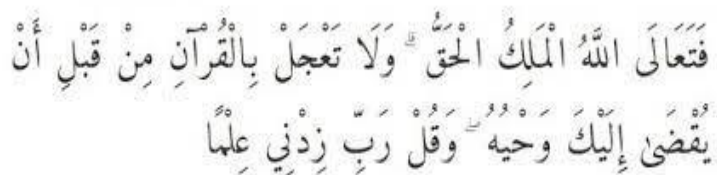 فَتَعَالَى اللَّهُ الْمَلِكُ الْحَقُّ ۗ وَلَا تَعْجَلْ بِالْقُرْآنِ مِنْ قَبْلِ أَنْ
يُقْضَىٰ إِلَيْكَ وَحْيُهُ ۖ وَقُلْ رَبِّ زِدْنِي عِلْمًا